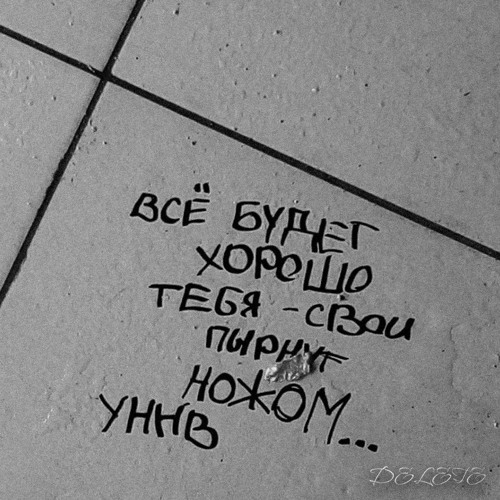 ВСЁ БУДЕТ
ХОРОШО
ТЕБЯ - СВОИ
ПЫРНУТ
НОЖОМ...
УННВ
DELETE